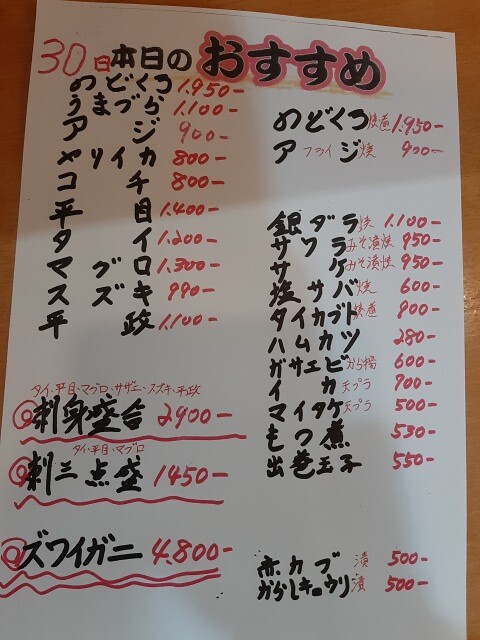 30日本日のおすすめ
のどくろ 1.950-
うまづら 1.100-
アジ 900-
ヤリイカ 800-
コチ 800-
平目 1.400-
タイ 1.200-
マグロ 1.300-
スズキ 990-
平政 1.100-
タイ・平目・マグロ・サザエ・スズキ・平政
◎刺身盛合 2900-
タイ・平目・マグロ
◎刺三点盛 1450-
◎ズワイガニ 4.800-
のどくろ 焼煮 1.950-
アジ フライ焼 900-
銀ダラ 焼 1.100-
サワラ みそ漬焼 950-
サケ みそ漬焼 950-
塩サバ 焼 600-
タイカブト 焼煮 800-
ハムカツ 280-
ガサエビ から揚 600-
イカ 天プラ 700-
マイタケ 天プラ 500-
もつ煮 530-
出巻玉子 550-
赤カブ 漬 500-
からしキュウリ 漬 500-